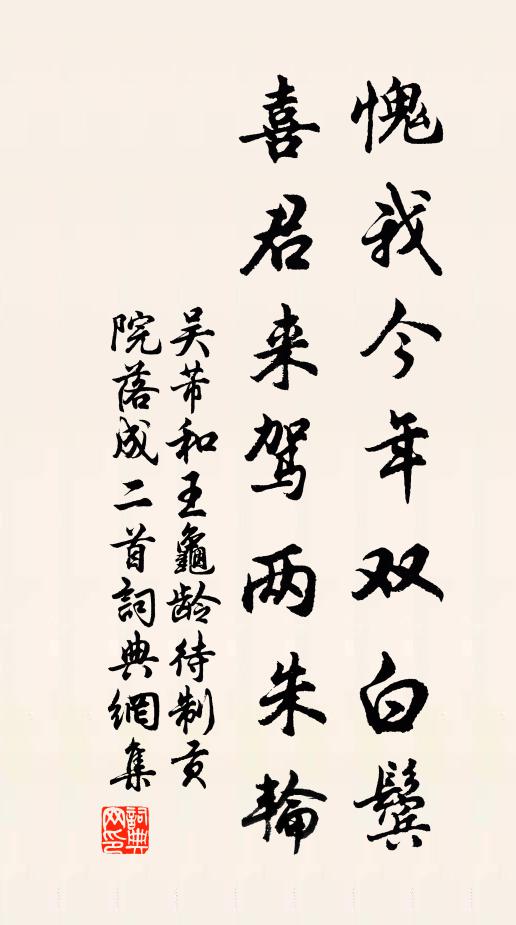 愧我今年双白鬓
喜君来驾两朱輪
吴芾和王龜龄待制贡
院落成二首詞典網集
詞典網印